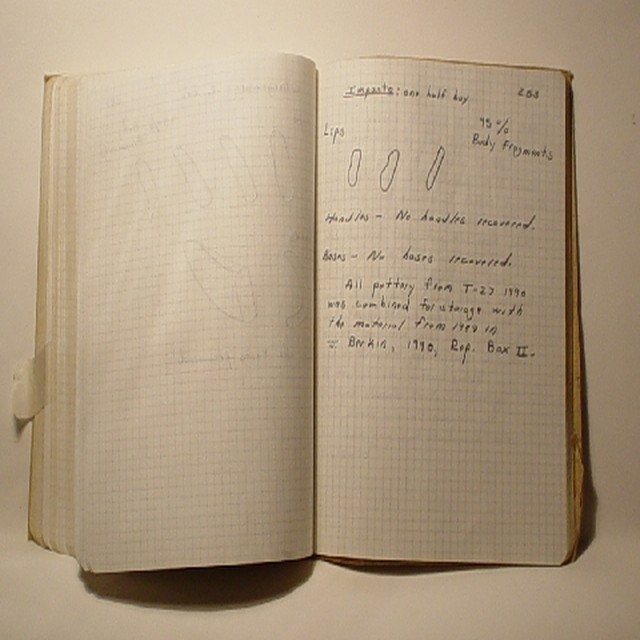 Imports: one half box
95%
Body Fragments
Lips
Handles - No handles recovered.
Bases - No bases recovered.
All pottery from T-27 1990
was combined for storage with
the material from 1989 in
1990, Rep. Box II.